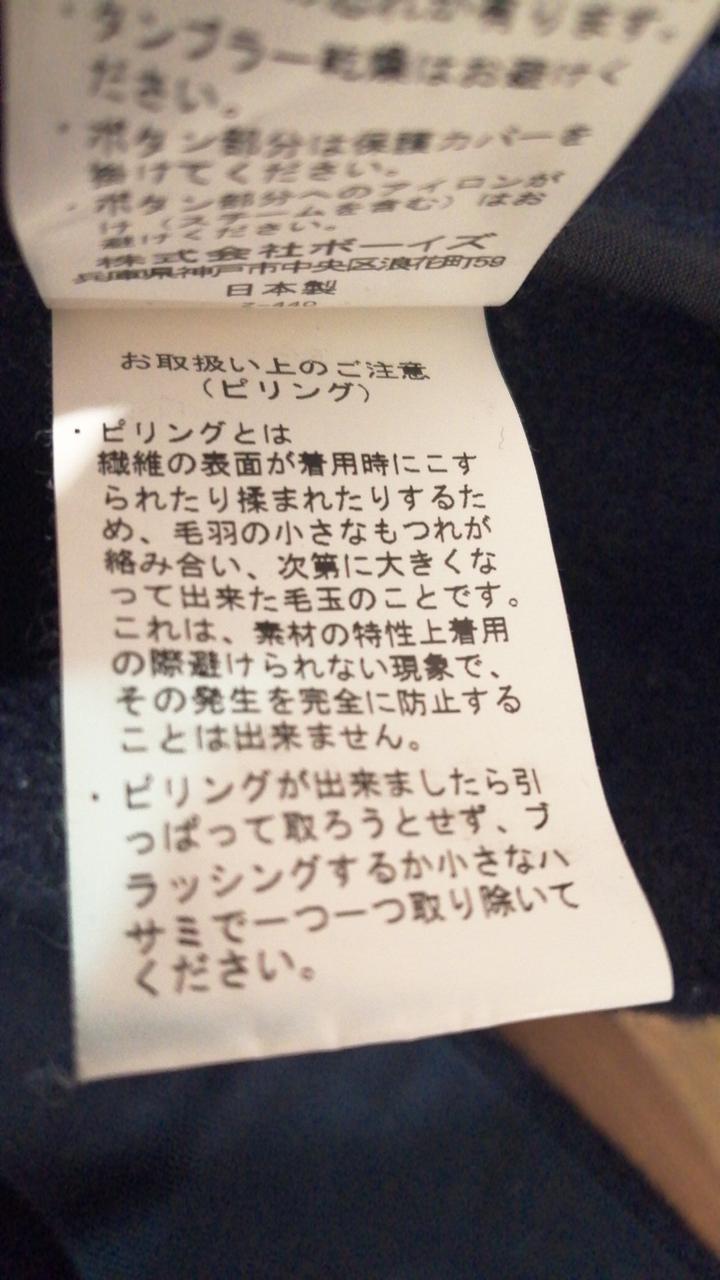 が有ります。
・タンブラー乾燥はお避けく
ださい。
・ボタン部分は保護カバーを
掛けてください。
・ボタン部分へのアイロンが
け（スチームを含む）はお
避けください。
株式会社ボーイズ
兵庫県神戸市中央区浪花町59
日本製
Z-440
お取扱い上のご注意
（ピリング）
・ピリングとは
繊維の表面が着用時にこす
られたり揉まれたりするた
め、毛羽の小さなもつれが
絡み合い、次第に大きくな
って出来た毛玉のことです。
これは、素材の特性上着用
の際避けられない現象で、
その発生を完全に防止する
ことは出来ません。
・ピリングが出来ましたら引
っぱって取ろうとせず、ブ
ラッシングするか小さなハ
サミで一つ一つ取り除いて
ください。